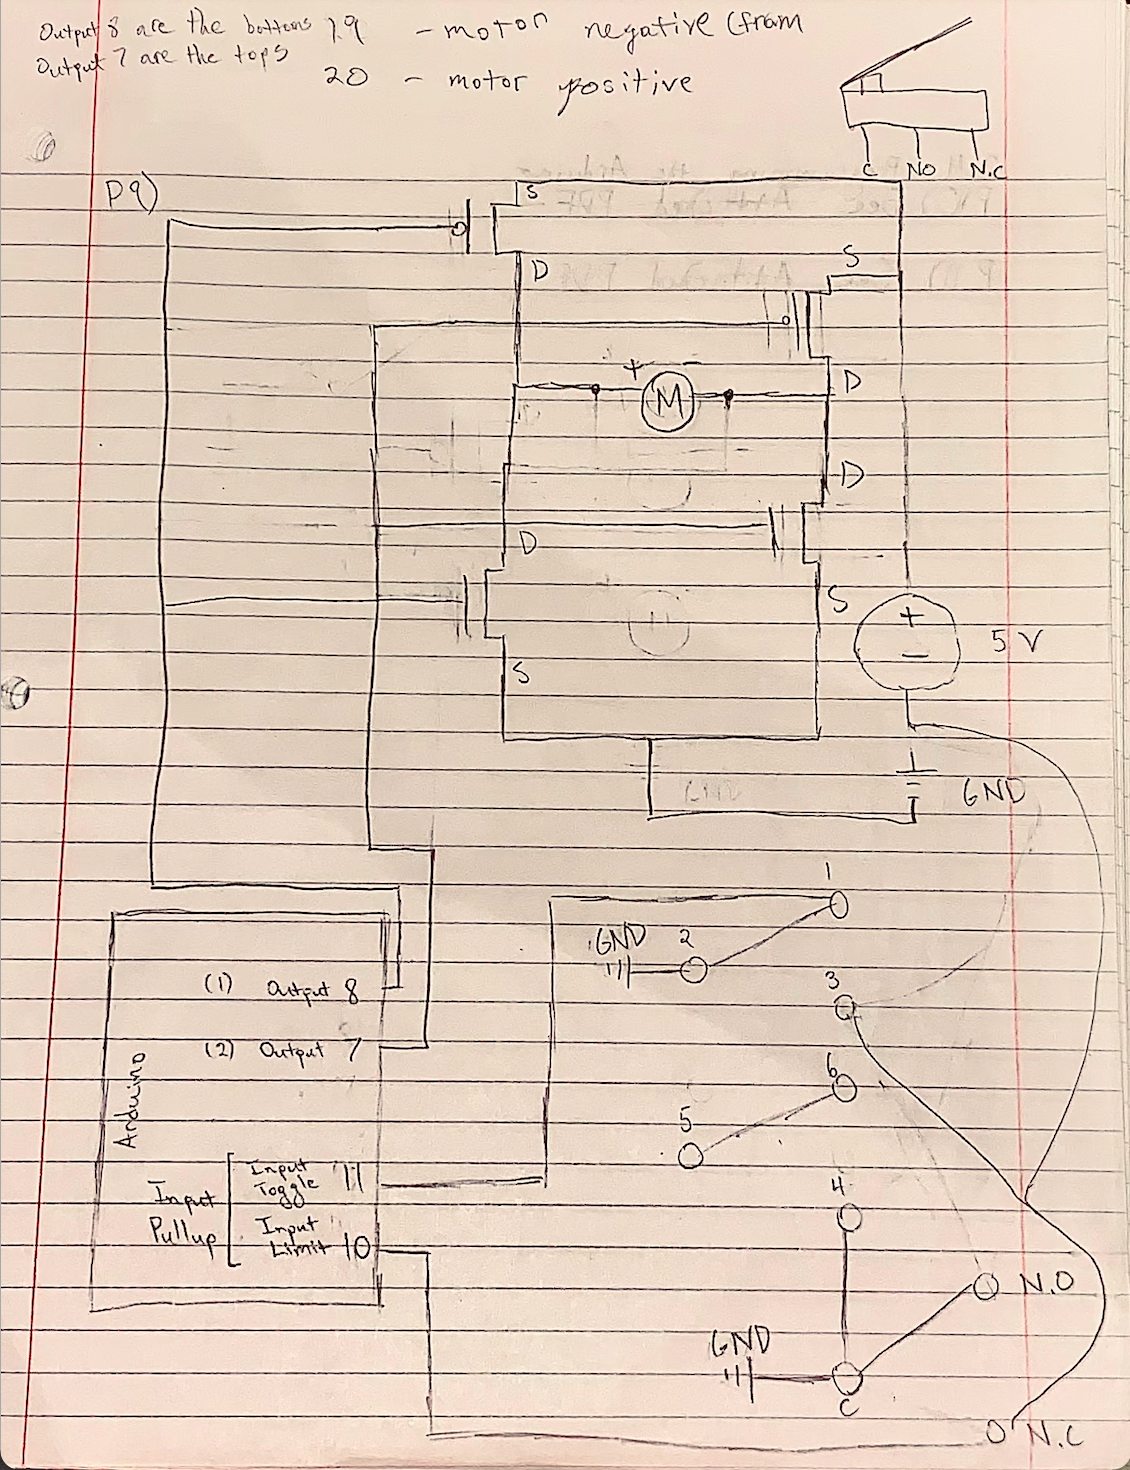 Output 8 are the bottoms
Output 7 are the tops
19 - motor negative (from
20 - motor positive
C NO N.C
P9)
S
D
S
+ M -
D
D
D
S
S
+
-
5 V
GND
1
GND 2
3
(1) Output 8
(2) Output 7
6
5
Arduino
Input Toggle 11
Input Pullup
Input Limit 10
4
N.O
GND
C
N.C